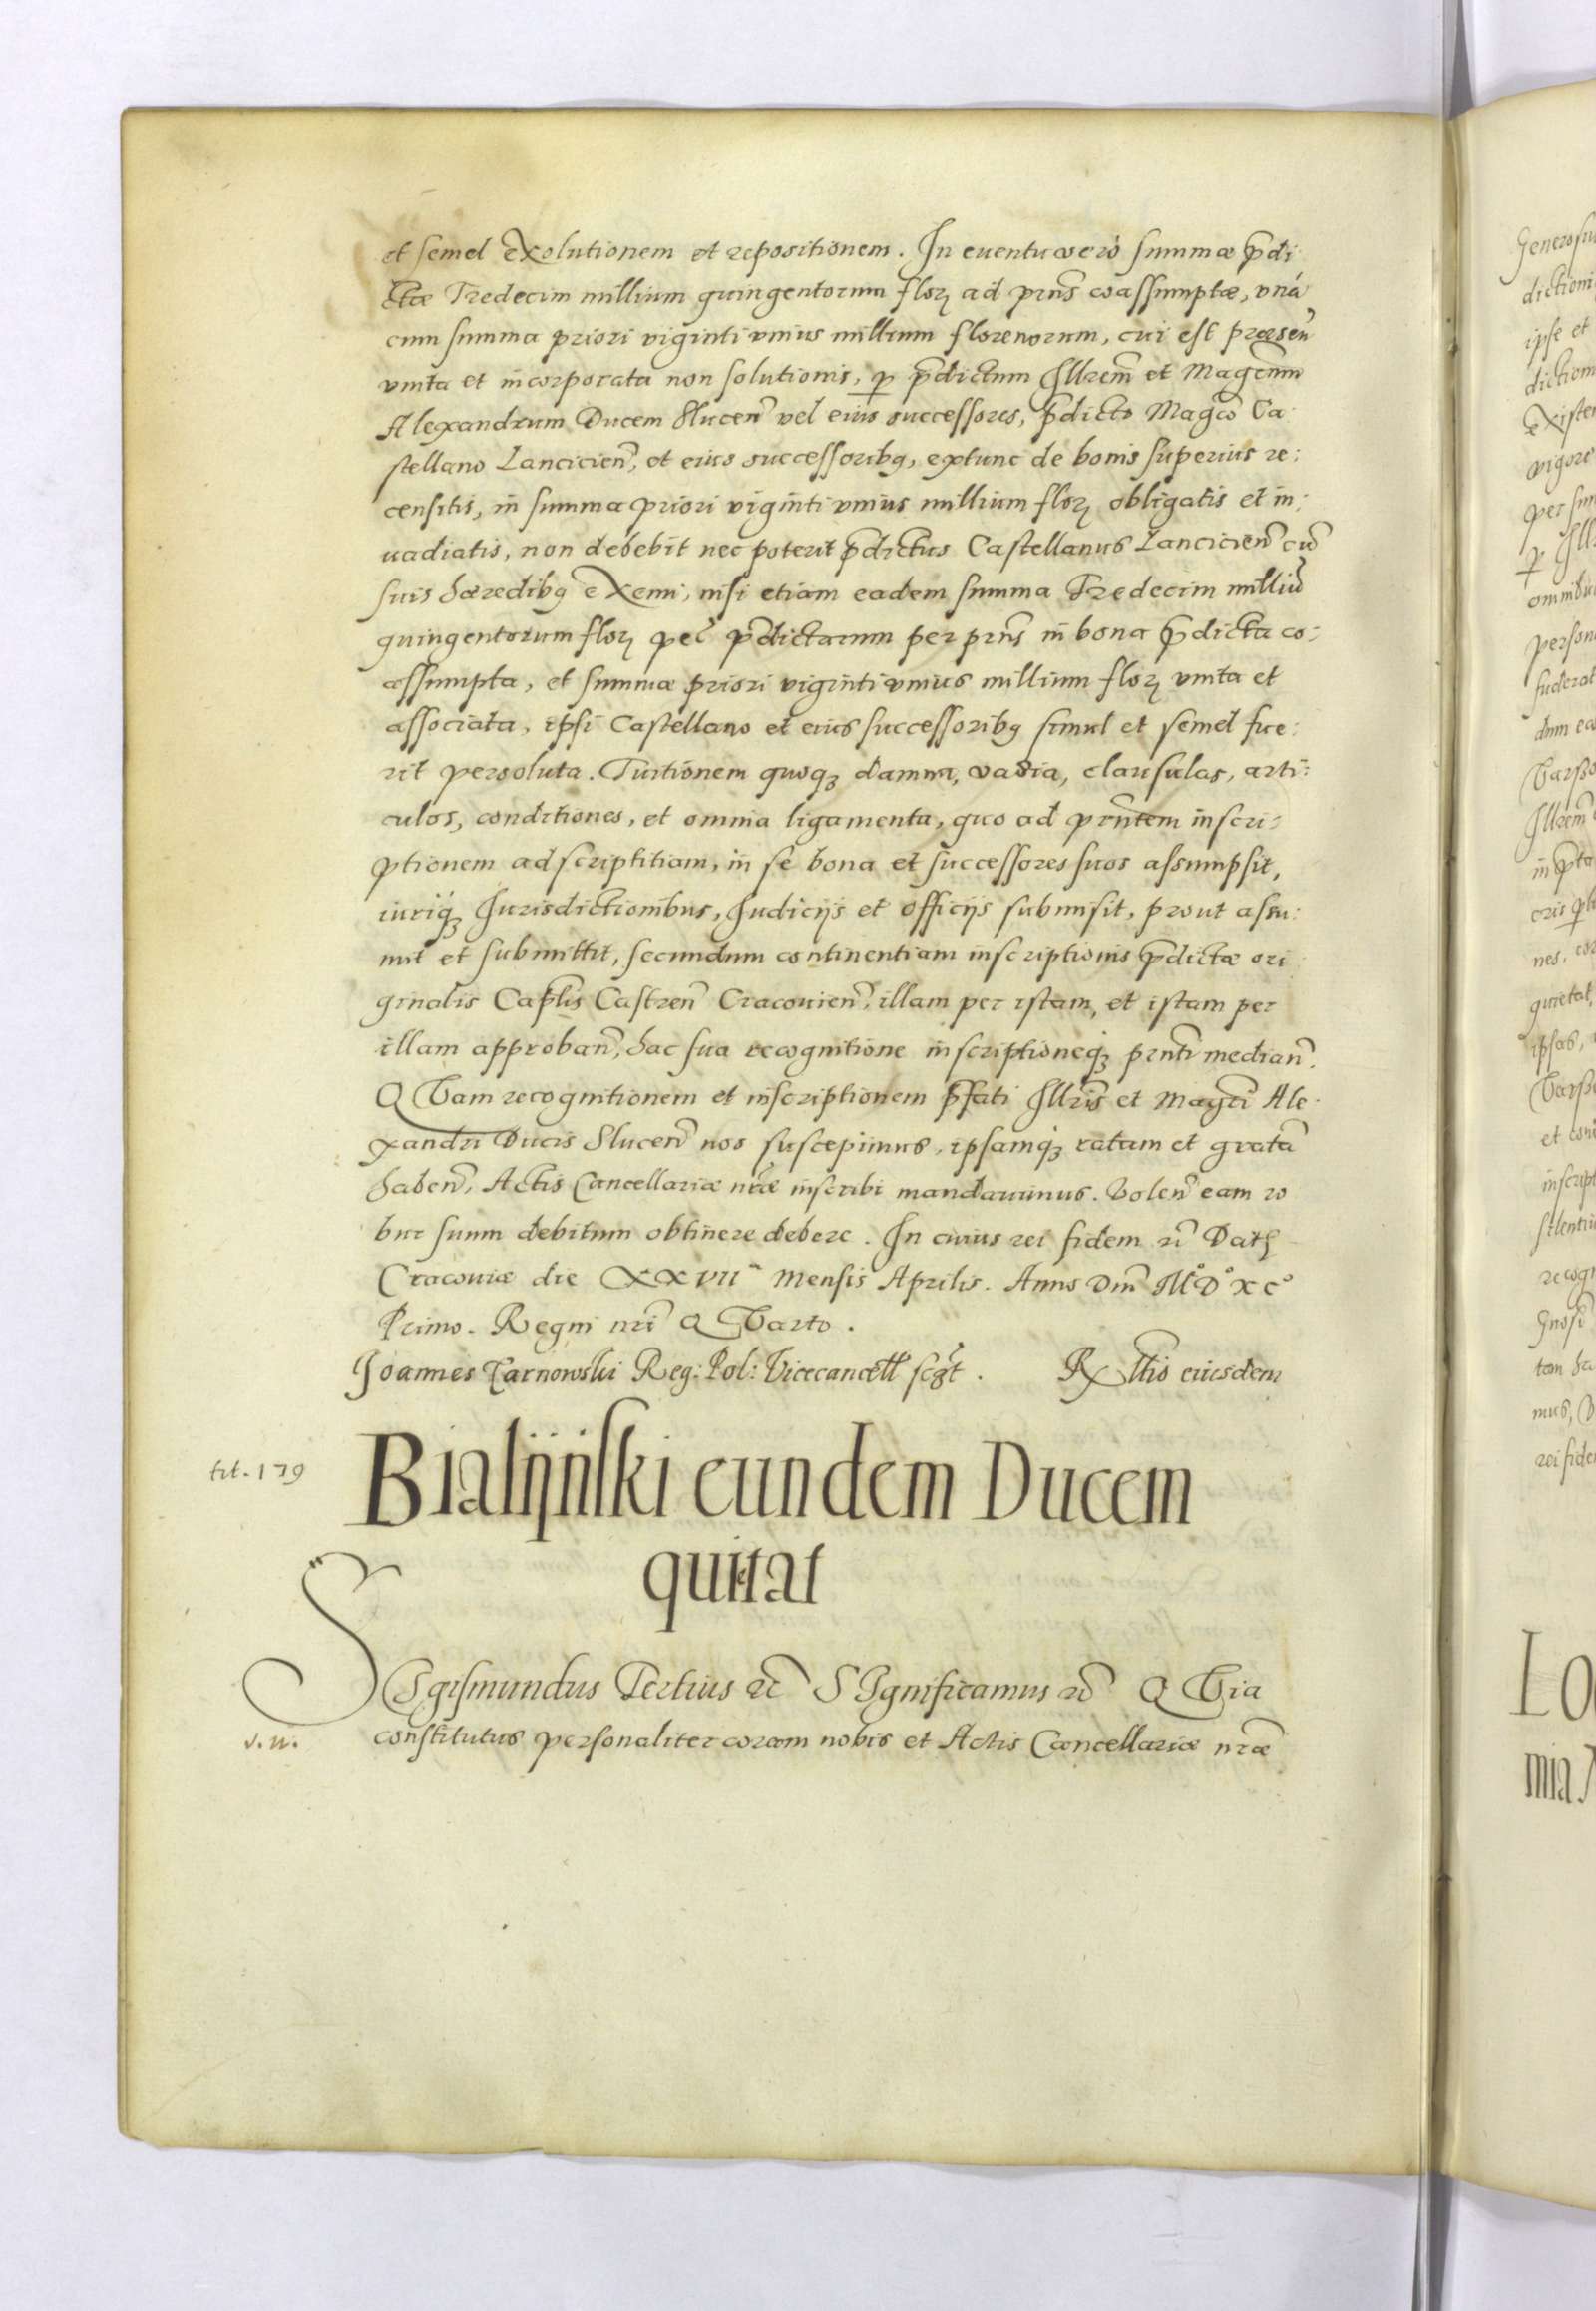 et semel exolutionem et repositionem. In euentu vero summæ p̄di
ctæ Tredecim millium quingentorum flor̄ ad pn̄s coassumptæ, vná
cum summa priori viginti vnius millium florenorum, cui est præsen̄
vnita et incorporata non solutionis, p̱ p̄dictum Illrem̄ et Mag̅cum
Alexandrum Ducem Slucen̄ vel eius successores, p̄dicto Mag̅co Ca-
stellano Lancicien̄, et eius successoribq, extunc de bonis superius re:
censitis, in summa priori viginti vnius millium flor̄ obligatis et in:
uadiatis, non debebit nec poterit p̄dictus Castellanus Lancicien̄ cū
suis hæredibq eximi, nisi etiam eadem summa Tredecim milliū
quingentorum flor̄ pec̄ p̄dictarum per prn̄s in bona p̄dicta co:
assumpta, et summæ priori viginti vnius millium flor̄ vnita et
associata, ipsi Castellano et eius successoribq simul et semel fue:
rit persoluta. Tuitionem quoqȝ damna, vadia, clausulas, arti:
culos, conditiones, et omnia ligamenta, quo ad prn̄tem inscri:
ptionem adscriptitiam, in se bona et successores suos assumpsit,
iuriqȝ Iurisdictionibus, Iudicijs et officijs submisit, prout assu:
mit et submittit, secundum continentiam inscriptionis p̄dictæ ori
ginalis Cap̄tlis Castren̄ Cracouien̄, illam per istam, et istam per
illam approban̄, hac sua recognitione inscriptioneqȝ prn̄ti median̄.
QVam recognitionem et inscriptionem p̄fati Illris̄ et Mag̅ci Ale-
xandri Ducis Slucen̄ nos suscepimus, ipsamqȝ ratam et gratā
haben̄, Actis Cancellariæ nr̄æ inscribi mandauimus. Volen̄ eam ro
bur suum debitum obtinere debere. In cuius rei fidem rc̄ Datȝ
Cracouiæ die XXVII ͣ Mensis Aprilis. Anno Dnī M°D°XC°
Primo. Regni nrī QVarto.
Joannes Tarnowski Reg: Pol: Vicecancell scȝt. Rltio eiusdem
tit. 179
Bialijński eundem Ducem
quietat
SIgismundus Tertius rc̄ SIgnificamus rc̄ QVia
s. n.
constitutus personaliter coram nobis et Actis Cancellariæ nr̄æ
Generosu
dictioni
ipse et
diction
existen
vigore
per sum
p̱ Ill
omnibu
person
fuderat
dum ea
Illrem̄
in p̄ta
nes, co
quietat,
ipsas,
et con
inscript
silentiu
recogn
tam ha
mus, V
rei fide
Lo
mia